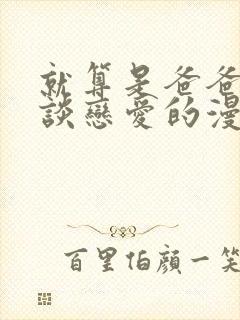 就算是爸爸
談戀愛的漫
百里伯顏一笑